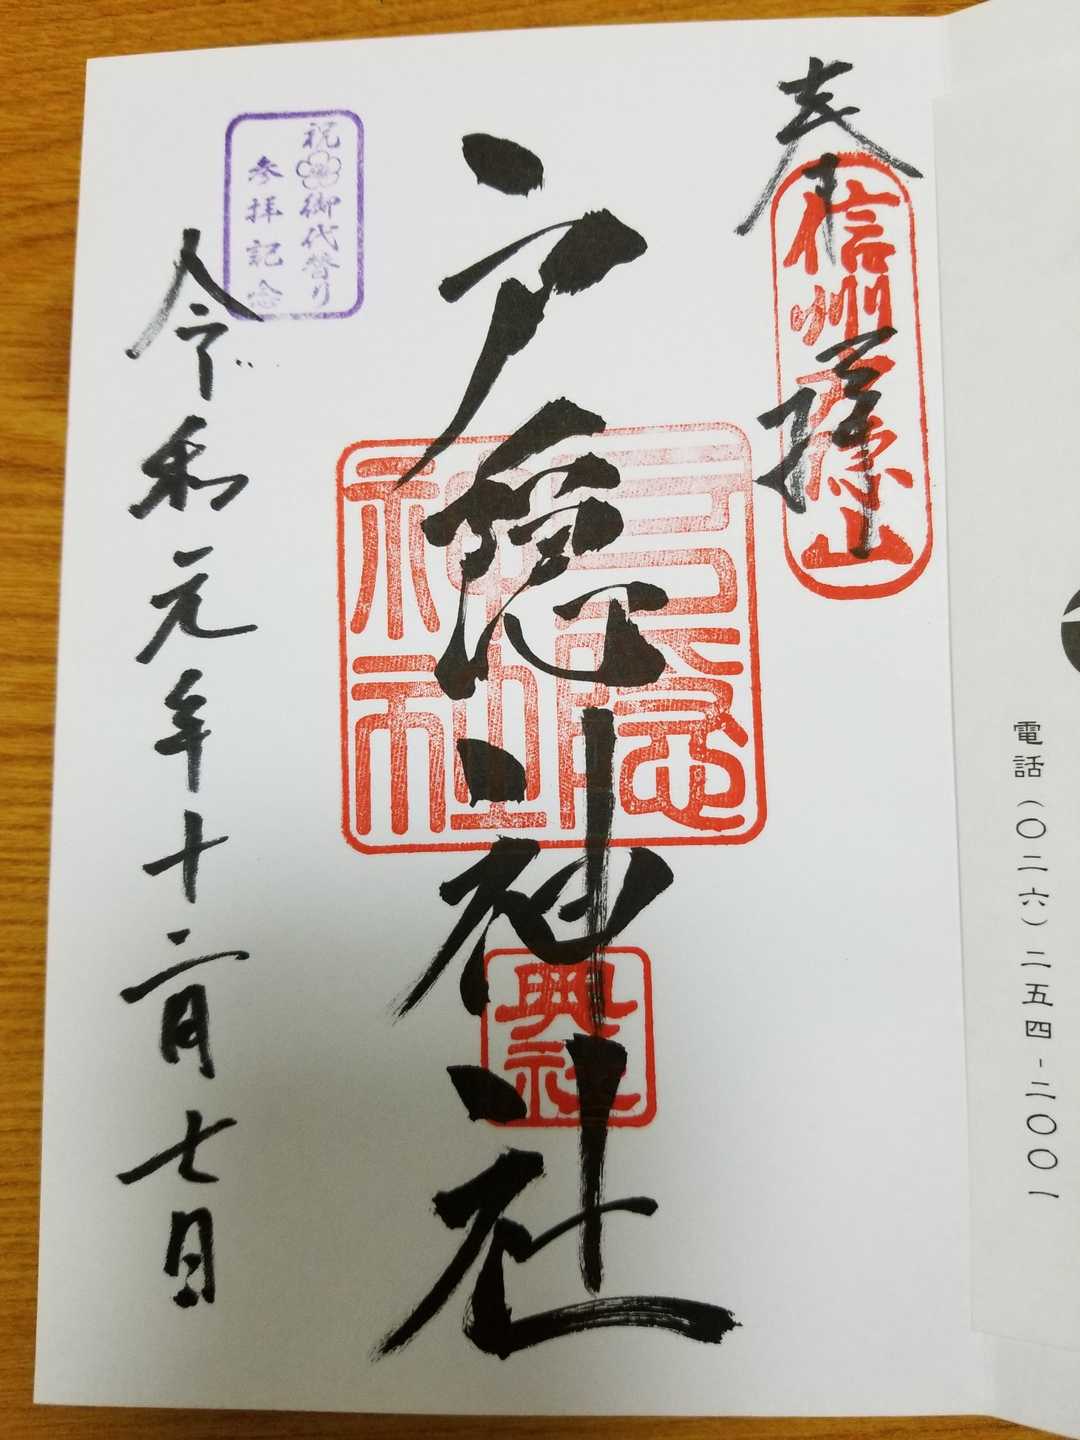 電話(〇二六)二五四-二〇〇一
奉拝
信州戸隠山
戸隠神社
戸隠神社
奥社
祝御代替り
参拝記念
令和元年十二月七日